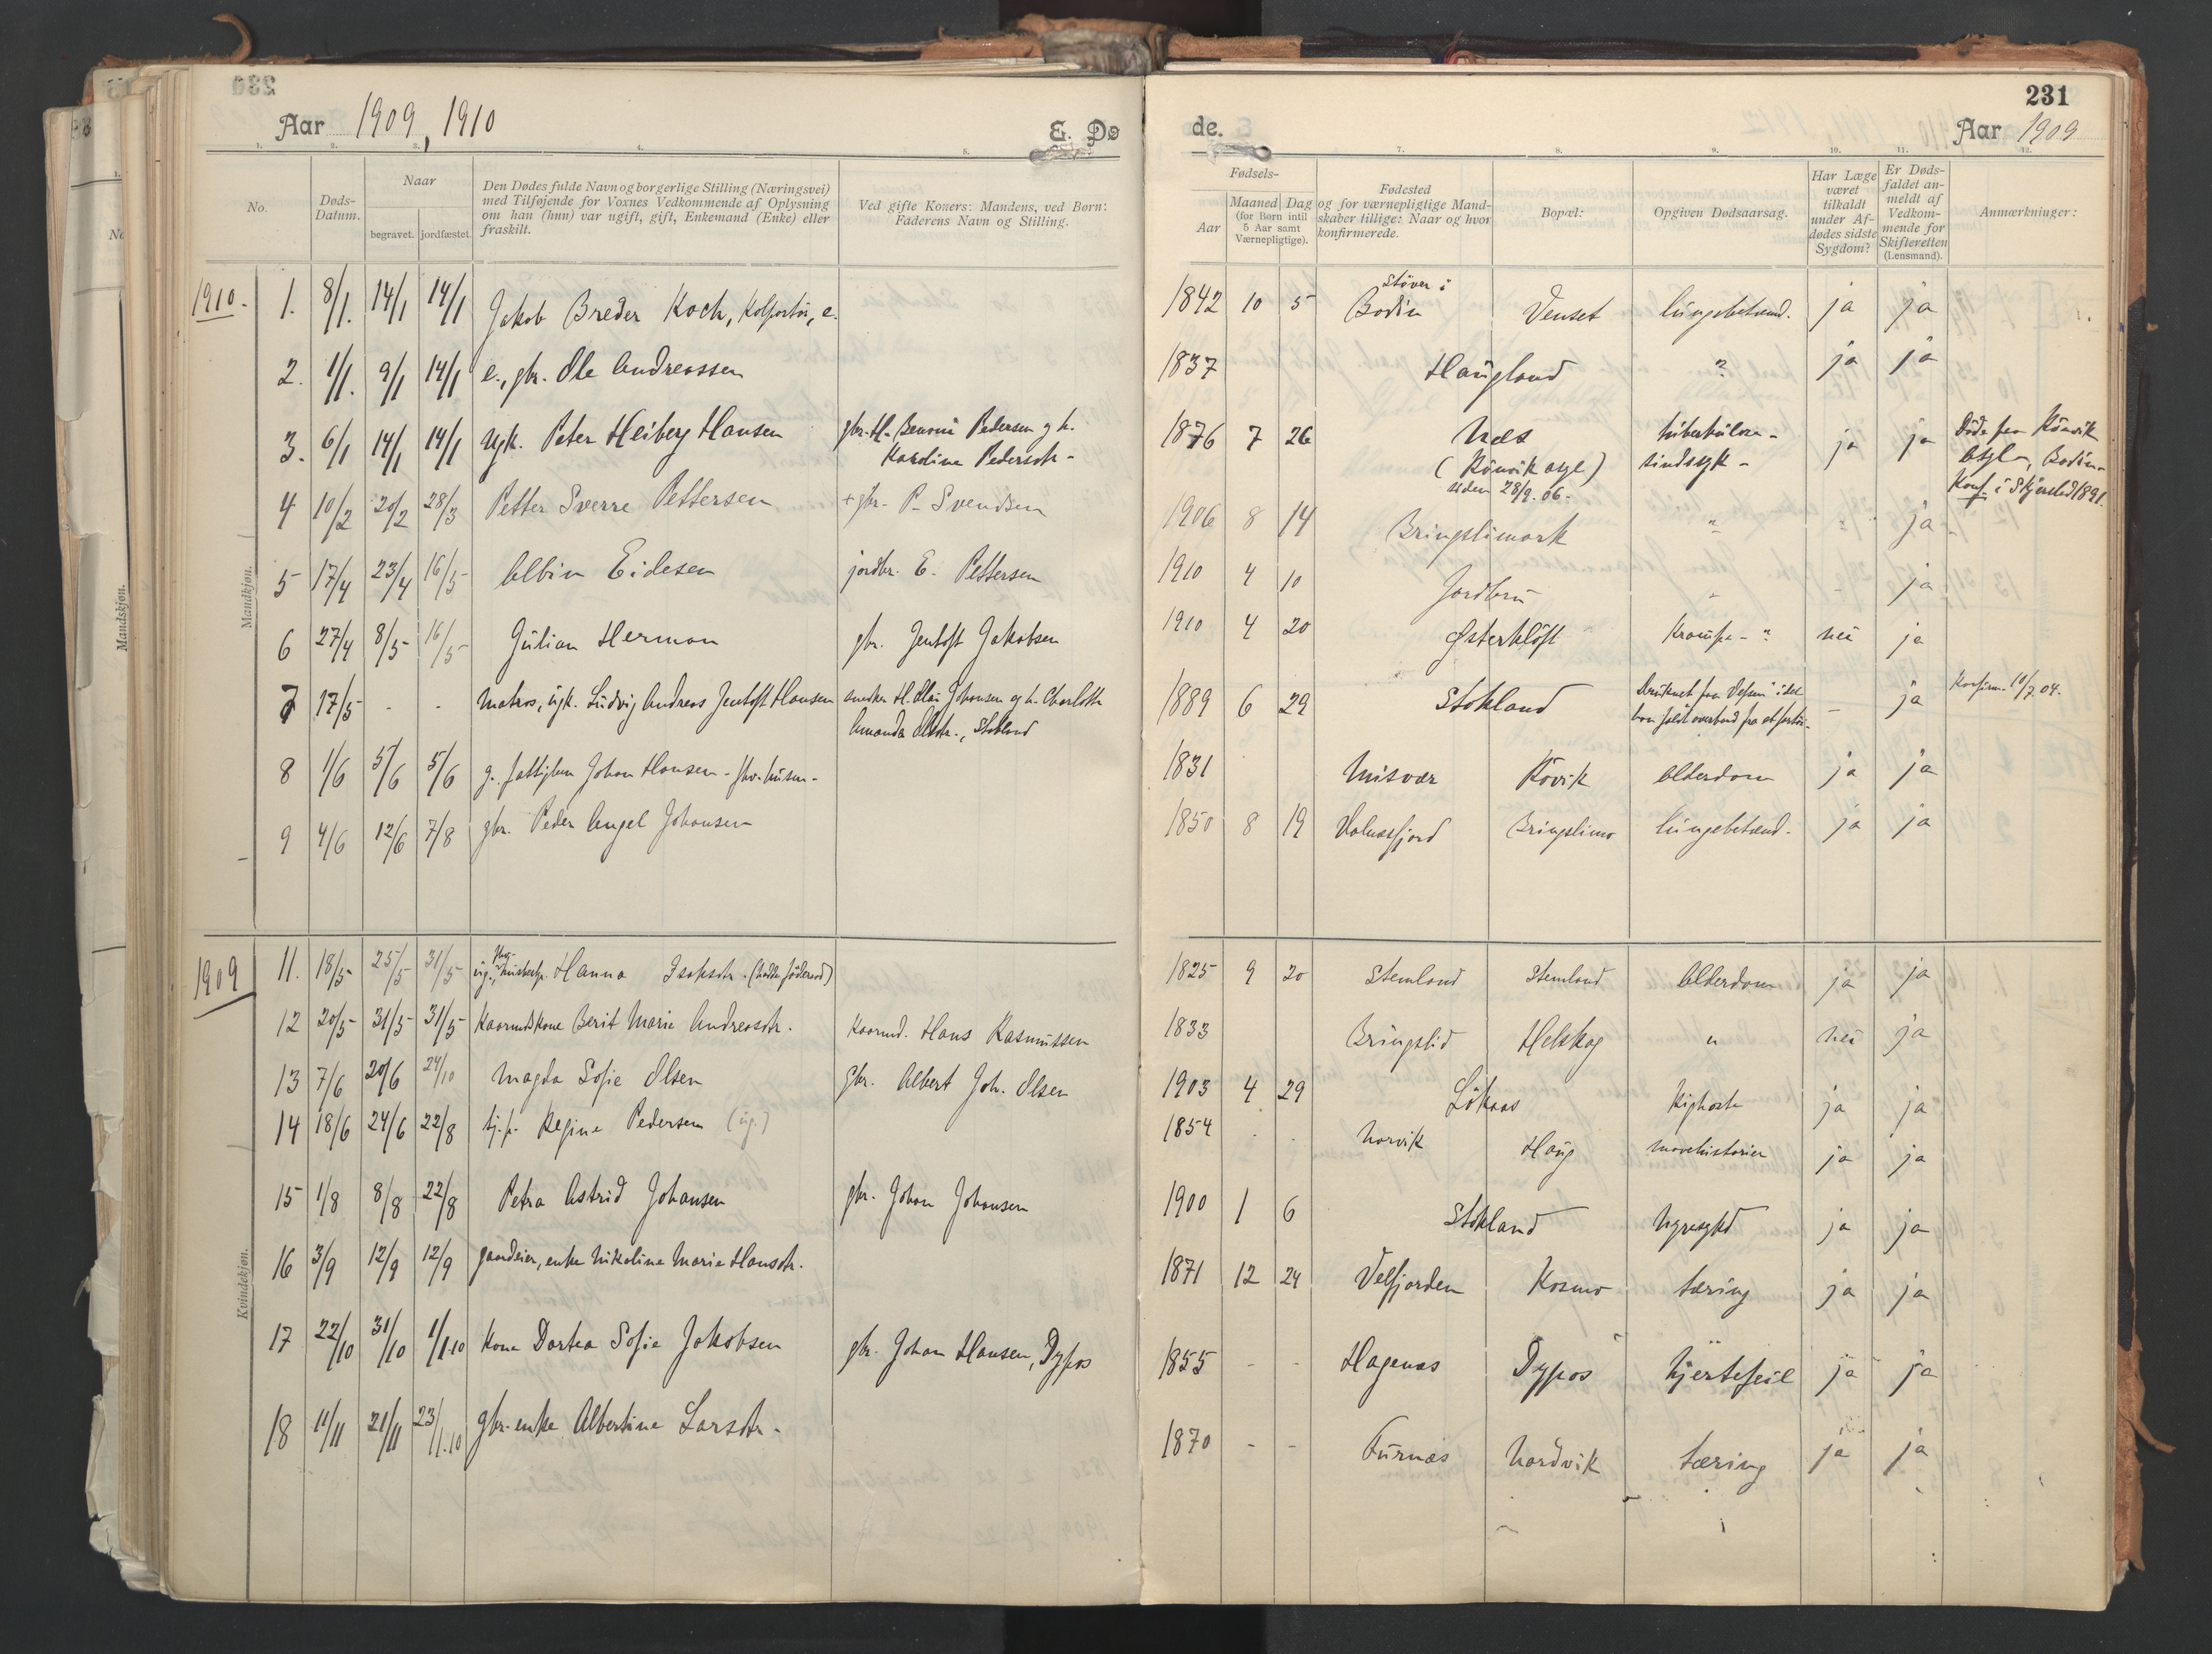 231
Aar 1909, 1910
E. Dø
de.
Aar 1909
1. 2. 3. 4. 5.
7. 8. 9. 10. 11. 12.
No.
Døds-Datum.
Naar
begravet.
jordfæstet.
Den Dødes fulde Navn og borgerlige Stilling (Næringsvei)
med Tilføjende for Voxnes Vedkommende af Oplysning
om han (hun) var ugift, gift, Enkemand (Enke) eller
fraskilt.
Ved gifte Koner: Mandens, ved Børn:
Faderens Navn og Stilling.
Fødsels-
Aar
Maaned Dag
(for Børn intil
5 Aar samt
Værnepligtige).
Fødested
og for værnepligtige Mand-
skaber tillige: Naar og hvor
konfirmerede.
Bopæl:
Opgiven Dødsaarsag.
Har Læge
været
tilkaldt
under Af-
dødes sidste
Sygdom?
Er Døds-
faldet an-
meldt af
Vedkom-
mende for
Skifteretten
(Lensmand).
Anmærkninger:
Mandskjøn.
Mandkjøn.
1910.
1. 8/1. 14/1 14/1 Jakob Breder Koch, Kolportør, e. 1842 10 5 Støver i Bodin Venset lungebetænd. ja ja
2. 1/1. 9/1 14/1 e., gbr. Ole Andreassen 1837 Haugland ? ja ja
3. 6/1 14/1 14/1 Ugk. Peter Heiberg Hansen gbr. H. Benoni Pedersen og h.
Karoline Pedersdtr- 1876 7 26 Næs
(Rönvik asyl)
siden 28/9. 06. tuberkulose-
sindssyk- ja ja Døde paa Rönvik
Asyl-, Bodin-
Konf. i Skjerstad 1891.
4 10/2 20/2 28/3 Petter Sverre Pettersen + gbr- P- Svendsen 1906 8 14 Bringslimark " " ja
5 17/4 23/4 16/5 Albin Eidesen jordbr. E. Pettersen 1910 4 10 Jordbru " - ja
6 27/4 8/5 16/5 Julian Herman gbr. Jentoft Jakobsen 1910 4 20 Østerkløft Krampe-? nei ja
7 17/5 - - Matros, ugk. Ludvig Andreas Jentoft Hansen snedker H. Olai Johansen og h. Charlotte
Amanda Olsdtr., Stokland 1889 6 29 Stokland Druknet fra "Vesuv" idet
han faldt overbord fra et fartøi- - ja Konfirm. 10/7. 04.
8 1/6 5/6 5/6 g. fattiglem Johan Hansen - fhv. husm- 1831 Misvær Røvik Alderdom ja ja
9 4/6 12/6 7/8 gbr. Peder Angel Johansen 1850 8 19 Valnesfjord Bringslimo lungebetænd. ja ja
Kvindekjøn.
1909
11. 18/5 25/5 31/5 ug., Hanna Isaksdtr. (hadde föderaad) 1825 9 20 Stemland Stemland Alderdom ja ja
12 20/5 31/5 31/5 Kaarmdskone Berit Marie Andreasdtr. Kaarmd. Hans Rasmussen 1833 Bringslid Helskog " nei ja
13 7/6 20/6 24/10 Magda Sofie Olsen Gbr. Albert Joh. Olsen 1903 4 29 Løkaas Kighoste ja ja
14 18/6 24/6 22/8 tj.p. Regine Pedersen (ug.) 1854 - - Norvik Haug mavehistorier ja ja
15 1/8 8/8 22/8 Petra Astrid Johansen gbr. Johan Johansen 1900 1 6 Stokland Nyresykd ja ja
16 3/9 12/9 12/9 gaardeier, enke Nikoline Marie Hansdtr. 1871 12 24 Velfjorden Kosmo tæring ja ja
17 22/10 31/10 1/1.10 Kone Dortea Sofie Jakobsen gbr. Johan Hansen, Dypos 1855 - - Hagenæs Dypos hjertefeil ja ja
18 11/11 21/11 23/1.10 Gbr. enke Albertine Larsdtr. 1870 - - Furnæs Nordvik tæring ja ja